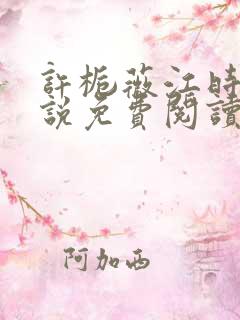 許栀薇江時
說免費閱讀
阿加西